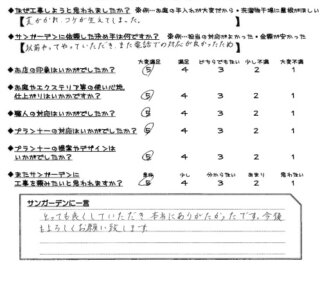 ◆なぜ工事しようと思われましたか? 条例…お庭の手入れが大変だから・洗濯物干場に屋根がほしい
【夏がかれ、コケが生えてしまった。 】
◆サンガーデンに依頼した決め手は何ですか? 条例…担当の対応がよかった・金額が安かった
【以前やってやっていただき、また電話での対応が良かったため 】
大変満足 満足 どちらでもない 少し不満 大変不満
◆お店の印象はいかがでしたか? 5 4 3 2 1
◆お庭やエクステリア等の使い心地、
仕上がりはいかがですか? 5 4 3 2 1
◆職人の対応はいかがでしたか? 5 4 3 2 1
◆プランナーの対応はいかがでしたか? 5 4 3 2 1
◆プランナーの提案やデザインは
いかがでしたか? 5 4 3 2 1
◆またサンガーデンに 是非 少し 分からない あまり 思わない
工事を頼みたいと思われますか? 5 4 3 2 1
サンガーデンに一言
とっても良くしていただき本当にありがたかったです。今後
もよろしくお願い致します